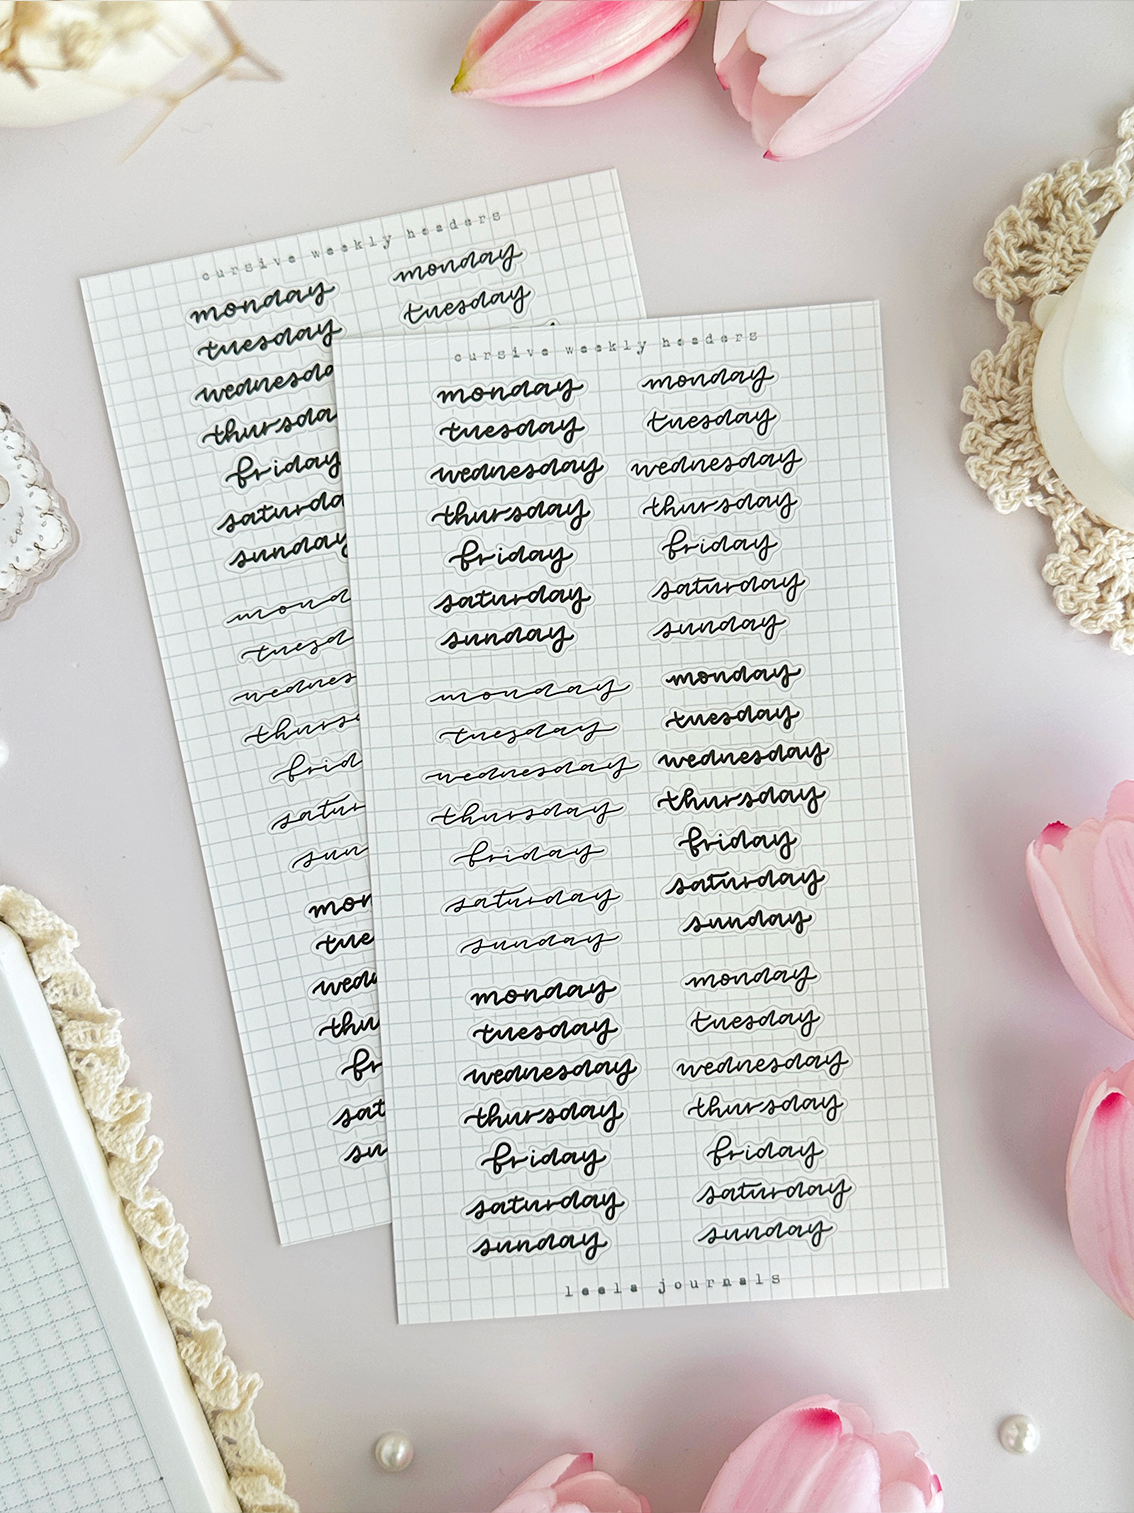 cursive weekly headers
monday monday
tuesday tuesday
wednesda
thursda
friday
saturda
sunday
mond
tuesd
wednes
thurs
frid
satur
sun
mon
tue
wedn
thu
fr
sat
su
cursive weekly headers
monday
tuesday
wednesday
thursday
friday
saturday
sunday
monday
tuesday
wednesday
thursday
friday
saturday
sunday
monday
tuesday
wednesday
thursday
friday
saturday
sunday
monday
tuesday
wednesday
thursday
friday
saturday
sunday
monday
tuesday
wednesday
thursday
friday
saturday
sunday
monday
tuesday
wednesday
thursday
friday
saturday
sunday
leela journals